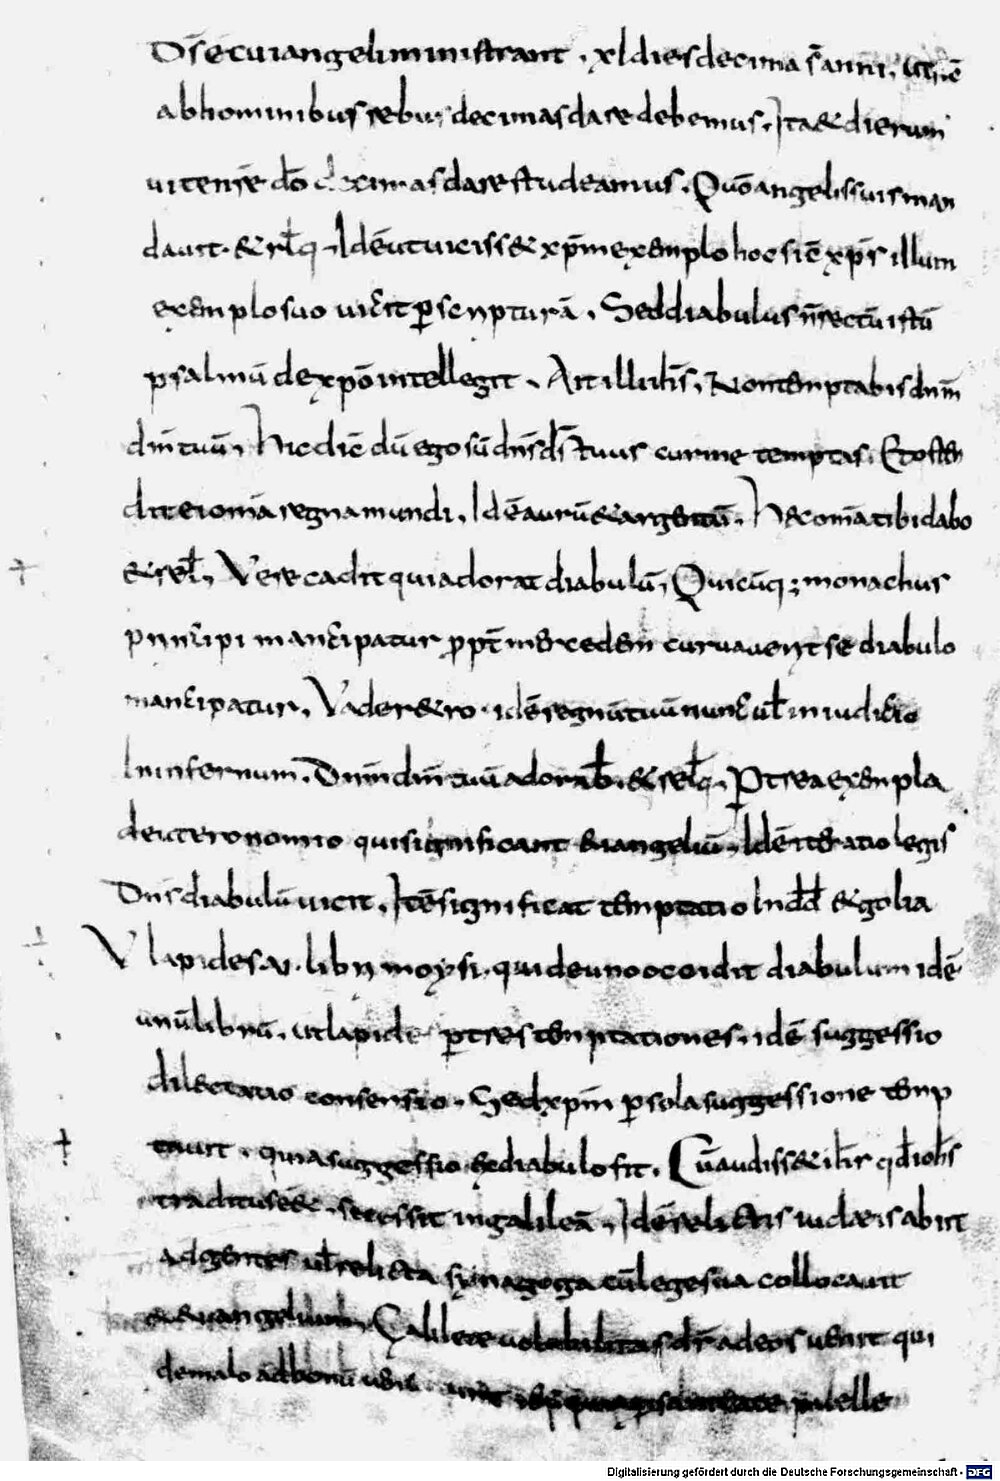 Ds̄ ē cui angeli ministrant . xl dies decima s̄ anni . ut nē
ab hominibus rebus decimas dare debemus . Ita & dierum
uitę nr̄e dō decimas dare studeamus . Quō angelis suis man
dauit . & rl̄q . Idē ut uiciss& xp̄m exemplo hoc sic̄ xp̄s illum
exemplo suo uicit p̄ scripturā . Sed diabulus n̄ rectū istū
psalmū de xp̄o intellegit . Ait illi ih̄s . Non temptabis dnm̄
dm̄ tuū . Hic dic̄ dū ego sū dn̄s ds̄ tuus cur me temptas . Et osten
dit ei omīa regna mundi . Idē aurū & argentū . Hec omīa tibi dabo
& rel̄ . Vere cadit qui adorat diabulū . Quicūq; monachus
principi mancipatur propt̄ mercedem curuauerit se diabulo
mancipatur . Vade retro . idē regnū tuū nunc ul̄ in iudicio
In infernum . Dnm̄ dm̄ tuū adorab̄ . & rel̄q . P̄ tria exempla
deuteronomio qui significant euangeliū . Idē iteratio legis
Dn̄s diabulū uicit . Itē significat temptatio In dd̄ & golia
V lapides .u. libri moysi . qui de uno occidit diabulum idē
unū librū . ut lapide p̄ tres temptationes . idē suggessio
dilectatio consensio . Sed xp̄m p̄ sola suggessione temp
tauit . quia suggessio ex diabulo fit . Cū audiss& ih̄s qd̄ ioh̄s
traditus ēē& . secessit in galileā . Idē relictis iudaeis abiit
ad gentes ul̄ relicta synagoga cū lege sua collocauit
& euangelium . Galileae uolubilitas dr̄ ad eos uenit qui
de malo ad bonū